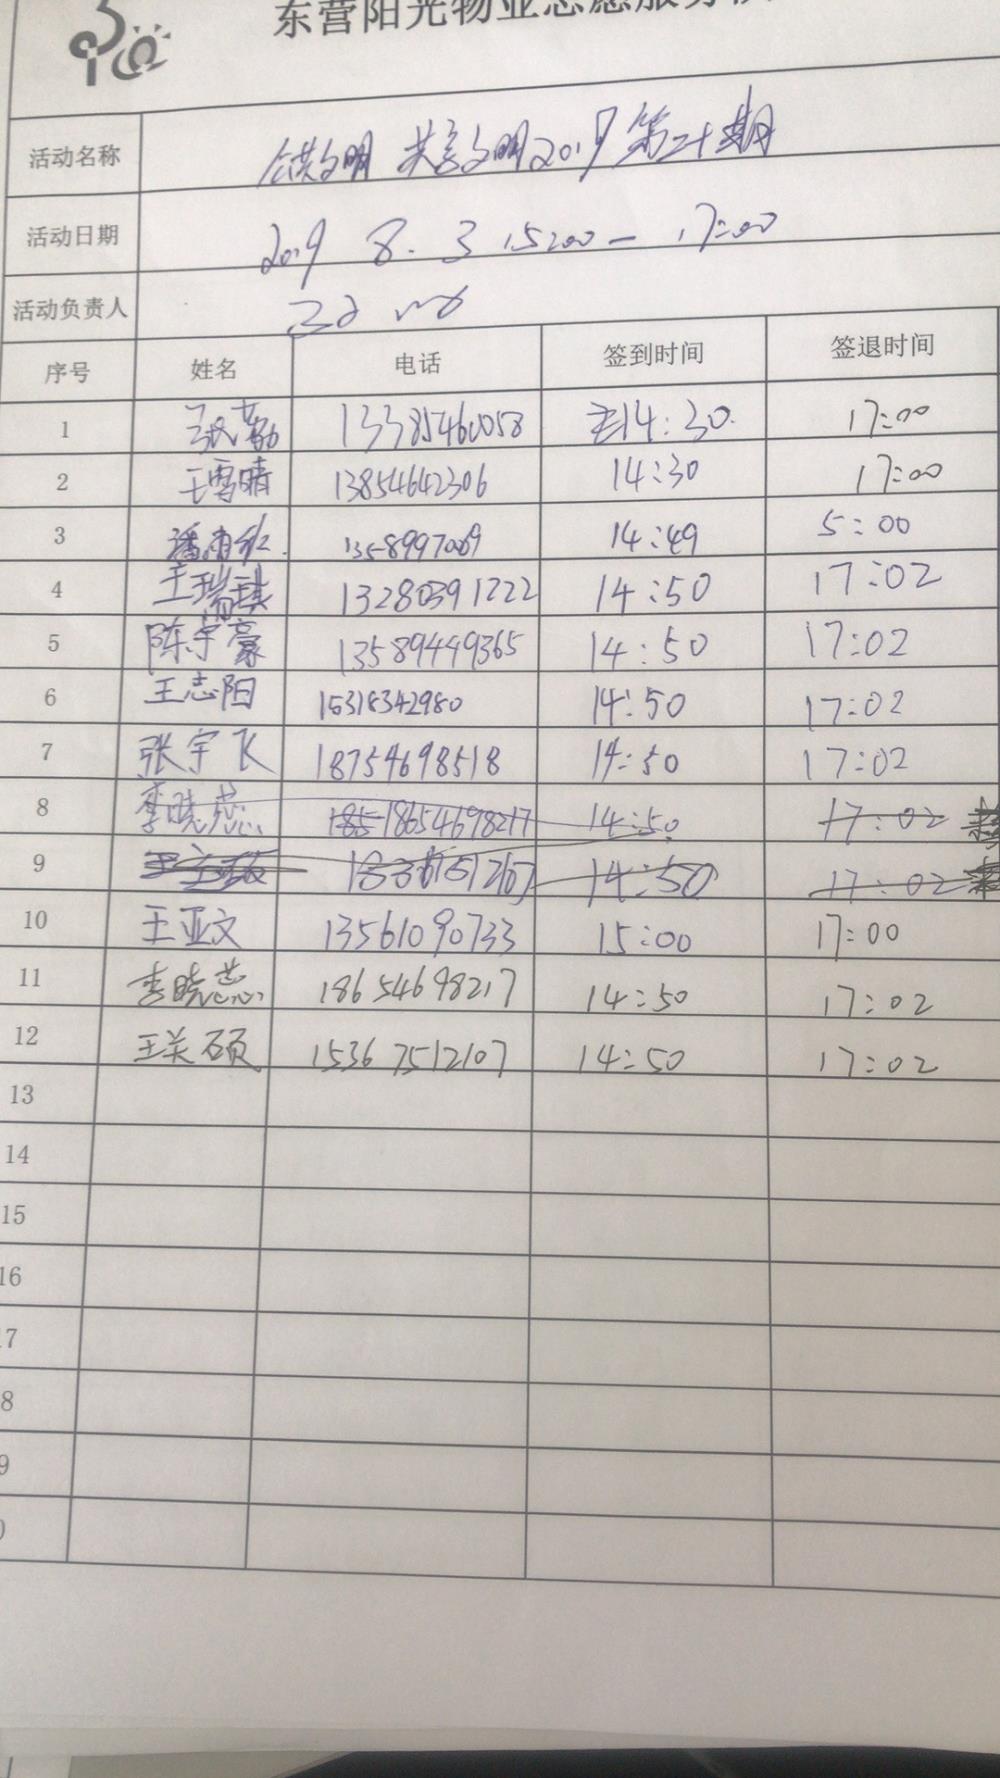 东营阳光物业志愿服务队
活动名称 公共文明 共享文明2019第二十期
活动日期 2019 8.3 15:00—17:00
活动负责人
序号 姓名 电话 签到时间 签退时间
1 13385460058 14:30. 17:00
2 王雪晴 13854642306 14:30 17:00
3 1358997009 14:49 5:00
4 王瑞琪 13280391222 14:50 17:02
5 陈宇豪 13589449365 14:50 17:02
6 王志阳 15318342980 14:50 17:02
7 张宇飞 18754698518 14:50 17:02
8 李晓蕊 185 18654698217 14:50 17:02
9 14:50 17:02
10 王亚文 13561090733 15:00 17:00
11 李晓蕊 18654698217 14:50 17:02
12 王关硕 15367512107 14:50 17:02
13
14
15
16